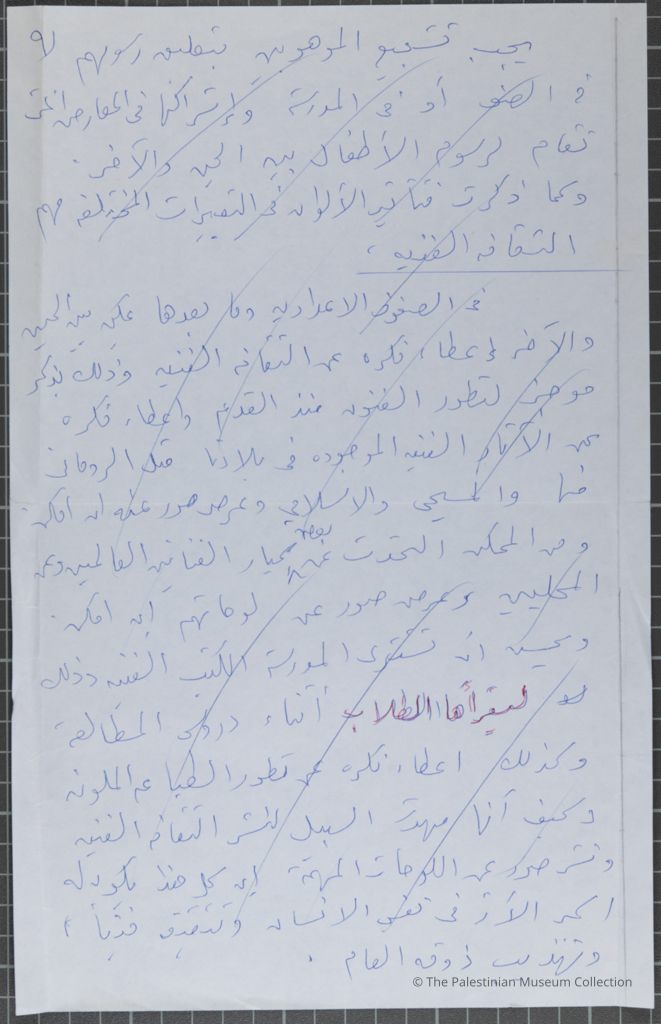 يجب تشجيع الموهوبين بتعليق رسومهم
في الصف أو في المدرسة وإشراكها في المعارض التي
تقام لرسوم الأطفال بين الحين والآخر.
وكما ذكرت فتأثير الألوان في التعبيرات المختلفه مهم
الثقافه الفنيه :
في الصفوف الاعداديه وما بعدها يمكن بين الحين
والآخر إعطاء فكره عن الثقافه الفنيه وذلك بذكر
موجز لتطور الفنون منذ القدم واعطاء فكره
عن الآثار الفنيه الموجوده في بلادنا مثل الروماني
منها والمسيحي والاسلامي وعرض صور عنه ان امكن
ومن الممكن التحدث عن بعض كبار الفنانين العالميين وعن
المحليين وعرض صور عن لوحاتهم ان امكن
ويحسن ان تشتري المدرسة الكتب الفنيه وذلك
ليقرأها الطلاب أثناء دروس المطالعة
وكذلك اعطاء فكره عن تطور الطباعه الملونه
وكيف أنها مهدت السبيل لنشر الثقافه الفنيه
ونشر صور عن اللوحات المهمة إن كل هذا يكون له
اكبر الأثر في نفس الانسان وتثقيفه فنياً ،
وتهذيب ذوقه العام .
© The Palestinian Museum Collection